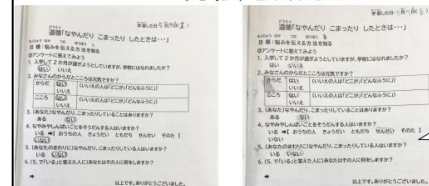 どうとく
道徳「なやんだり こまったり したときは・・・」
目標：悩みを伝える方法を知る
◎アンケートに答えてみよう
1. 入学して2か月が過ぎようとしていますが、学校にはなれましたか？
はい いいえ
2. みなさんのからだとこころは元気ですか？
からだ はい (いいえの人は「どこが」「どんなふうに」)
いいえ
こころ はい (いいえの人は「どこが」「どんなふうに」)
いいえ
3. (あなたは)なやんだり、こまったりしていることはありますか？
ある ない
4. なやみやしんぱいごとをそうだんする人はいますか？
いる ➡【 おうちの人 きょうだい ともだち せんせい そのた 】
いない
5. (あなたのまわりに)なやんだり、こまったりしている人はいますか？
いる いない
6. (5. で「いる」と答えた人)あなたはその人に何をしますか？
➡
以上です。ありがとうございました。
どうとく
道徳「なやんだり こまったり したときは・・・」
目標：悩みを伝える方法を知る
◎アンケートに答えてみよう
1. 入学して2か月が過ぎようとしていますが、学校にはなれましたか？
はい いいえ
2. みなさんのからだとこころは元気ですか？
からだ はい (いいえの人は「どこが」「どんなふうに」)
いいえ
こころ はい (いいえの人は「どこが」「どんなふうに」)
いいえ
3. (あなたは)なやんだり、こまったりしていることはありますか？
ある ない
4. なやみやしんぱいごとをそうだんする人はいますか？
いる ➡【 おうちの人 きょうだい ともだち せんせい そのた 】
いない
5. (あなたのまわりに)なやんだり、こまったりしている人はいますか？
いる いない
6. (5. で「いる」と答えた人)あなたはその人に何をしますか？
➡
以上です。ありがとうございました。